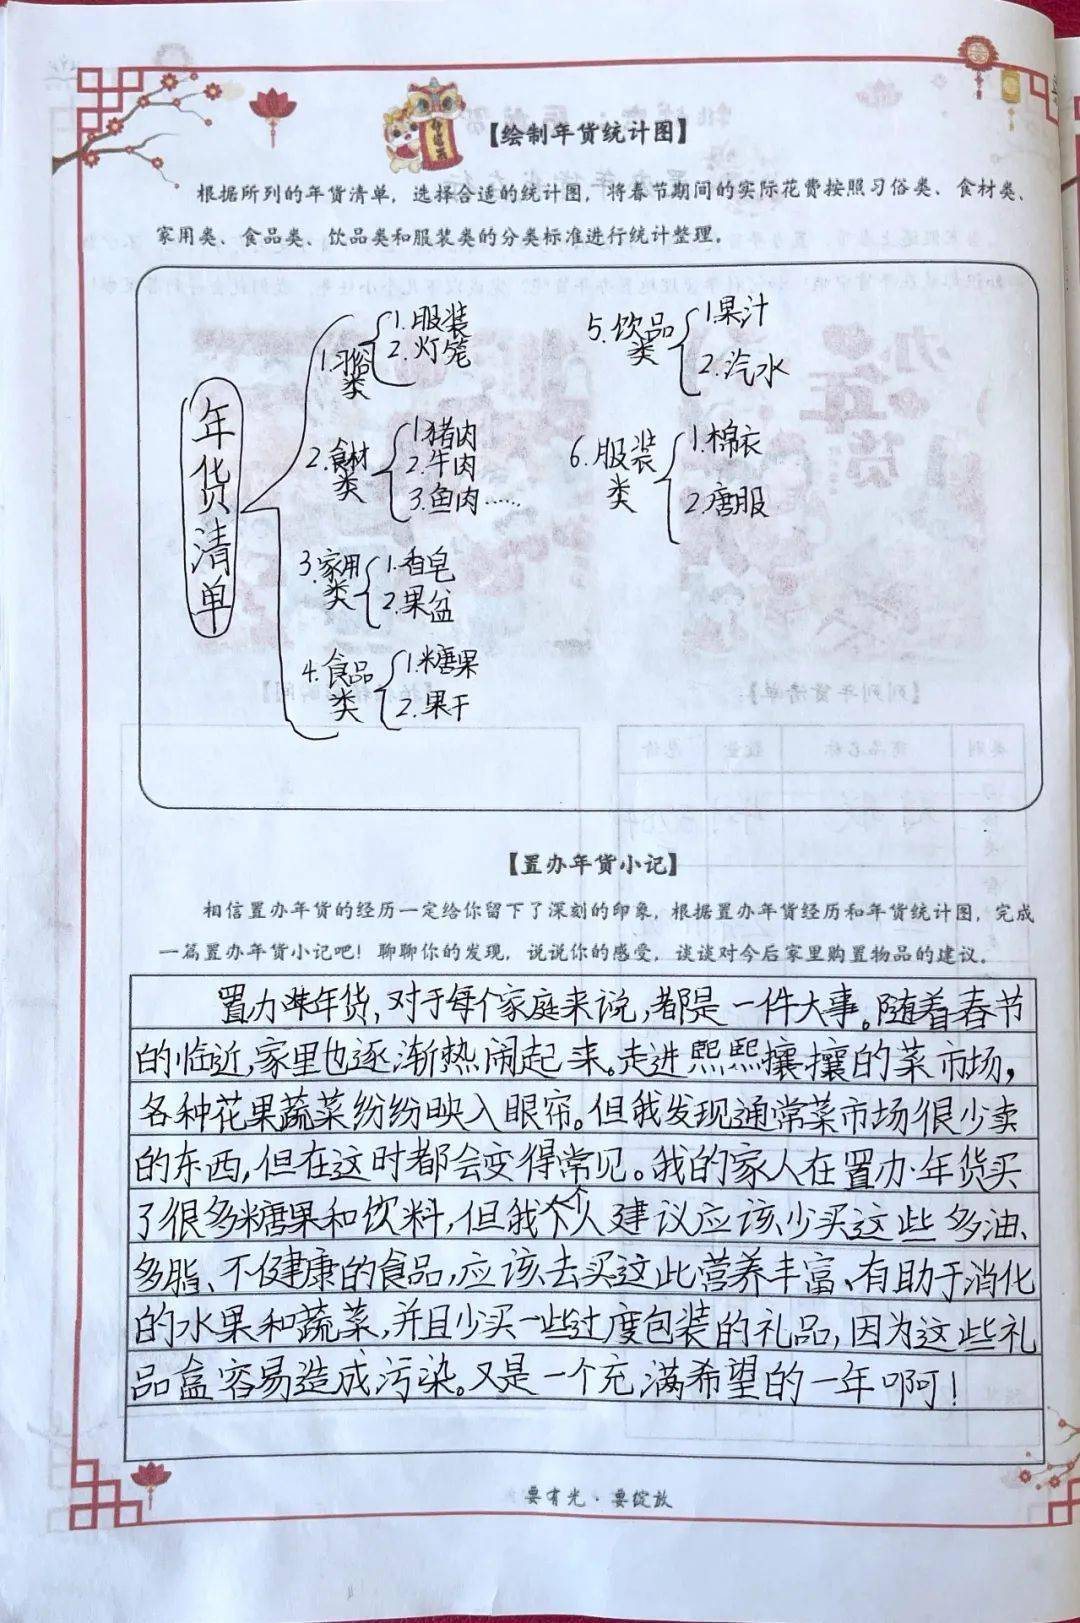 【绘制年货统计图】
根据所列的年货清单，选择合适的统计图，将春节期间的实际花费按照习俗类、食材类、
家用类、食品类、饮品类和服装类的分类标准进行统计整理。
年货清单
1.习俗类
1.服装
2.灯笼
2.食材类
1.猪肉
2.牛肉
3.鱼肉……
3.家用类
1.香皂
2.果盆
4.食品类
1.糖果
2.果干
5.饮品类
1.果汁
2.汽水
6.服装类
1.棉衣
2.唐服
【置办年货小记】
相信置办年货的经历一定给你留下了深刻的印象，根据置办年货经历和年货统计图，完成
一篇置办年货小记吧！聊聊你的发现，说说你的感受，谈谈对今后家里购置物品的建议。
置办年货，对于每个家庭来说，都是一件大事。随着春节
的临近，家里也逐渐热闹起来。走进熙熙攘攘的菜市场，
各种花果蔬菜纷纷映入眼帘。但我发现通常菜市场很少卖
的东西，但在这时都会变得常见。我的家人在置办年货买
了很多糖果和饮料，但我个人建议应该少买这些多油、
多脂、不健康的食品，应该去买这此营养丰富、有助于消化
的水果和蔬菜，并且少买一些过度包装的礼品，因为这些礼
品盒容易造成污染。又是一个充满希望的一年啊！
要有光·要绽放